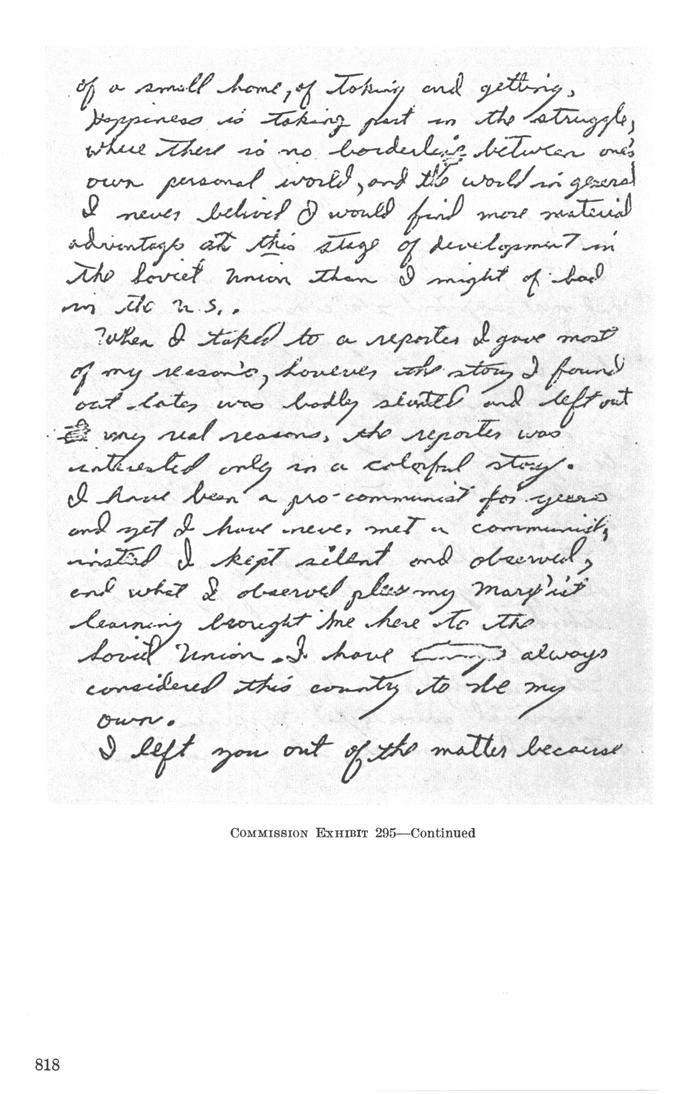 of a small home, of taking and getting,
Happiness is taking part in the struggle,
where there is no borderline between one's
own personal world, and the world in general
I never belived I would find more material
advantage at this stage of development in
the Soviet Union than I might of had
in the U.S..
When I taked to a reporter I gave most
of my reason's, however the story I found
out later was badly slanted and left out
my real reasons, the reporter was
interested only in a colorful story.
I have been a pro-communist for years
and yet I have never met a communist,
insted I kept silent and observed,
and what I observed plus my Marx'ist
learning brought me here to the
Soviet Union. I have always
considered this country to be my
own.
I left you out of the matter because
COMMISSION EXHIBIT 295—Continued
818